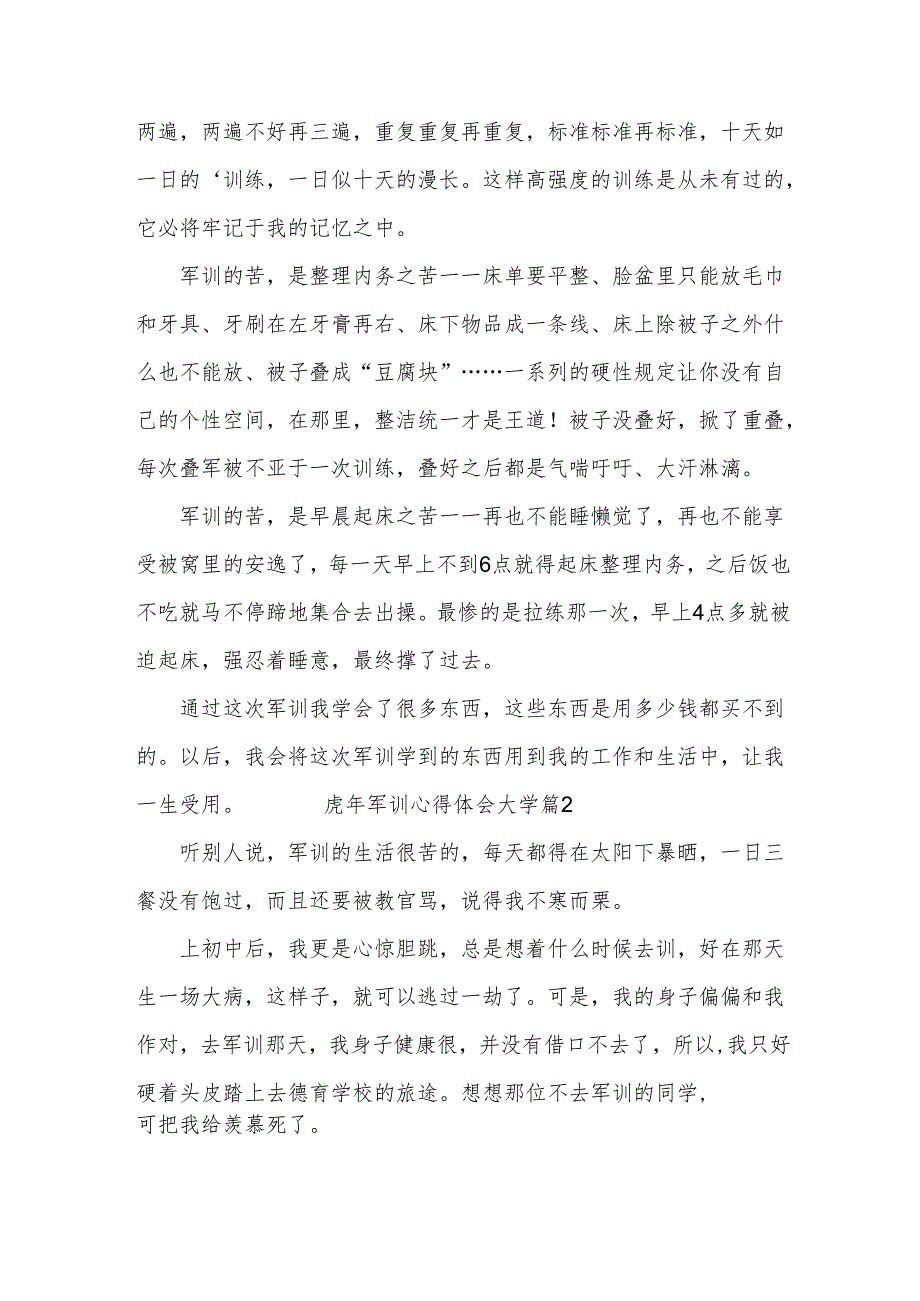 两遍，两遍不好再三遍，重复重复再重复，标准标准再标准，十天如
一日的‘训练，一日似十天的漫长。这样高强度的训练是从未有过的，
它必将牢记于我的记忆之中。
军训的苦，是整理内务之苦一一床单要平整、脸盆里只能放毛巾
和牙具、牙刷在左牙膏再右、床下物品成一条线、床上除被子之外什
么也不能放、被子叠成“豆腐块”……一系列的硬性规定让你没有自
己的个性空间，在那里，整洁统一才是王道！被子没叠好，掀了重叠，
每次叠军被不亚于一次训练，叠好之后都是气喘吁吁、大汗淋漓。
军训的苦，是早晨起床之苦一一再也不能睡懒觉了，再也不能享
受被窝里的安逸了，每一天早上不到6点就得起床整理内务，之后饭也
不吃就马不停蹄地集合去出操。最惨的是拉练那一次，早上4点多就被
迫起床，强忍着睡意，最终撑了过去。
通过这次军训我学会了很多东西，这些东西是用多少钱都买不到
的。以后，我会将这次军训学到的东西用到我的工作和生活中，让我
一生受用。 虎年军训心得体会大学篇2
听别人说，军训的生活很苦的，每天都得在太阳下暴晒，一日三
餐没有饱过，而且还要被教官骂，说得我不寒而栗。
上初中后，我更是心惊胆跳，总是想着什么时候去训，好在那天
生一场大病，这样子，就可以逃过一劫了。可是，我的身子偏偏和我
作对，去军训那天，我身子健康很，并没有借口不去了，所以,我只好
硬着头皮踏上去德育学校的旅途。想想那位不去军训的同学,
可把我给羡慕死了。